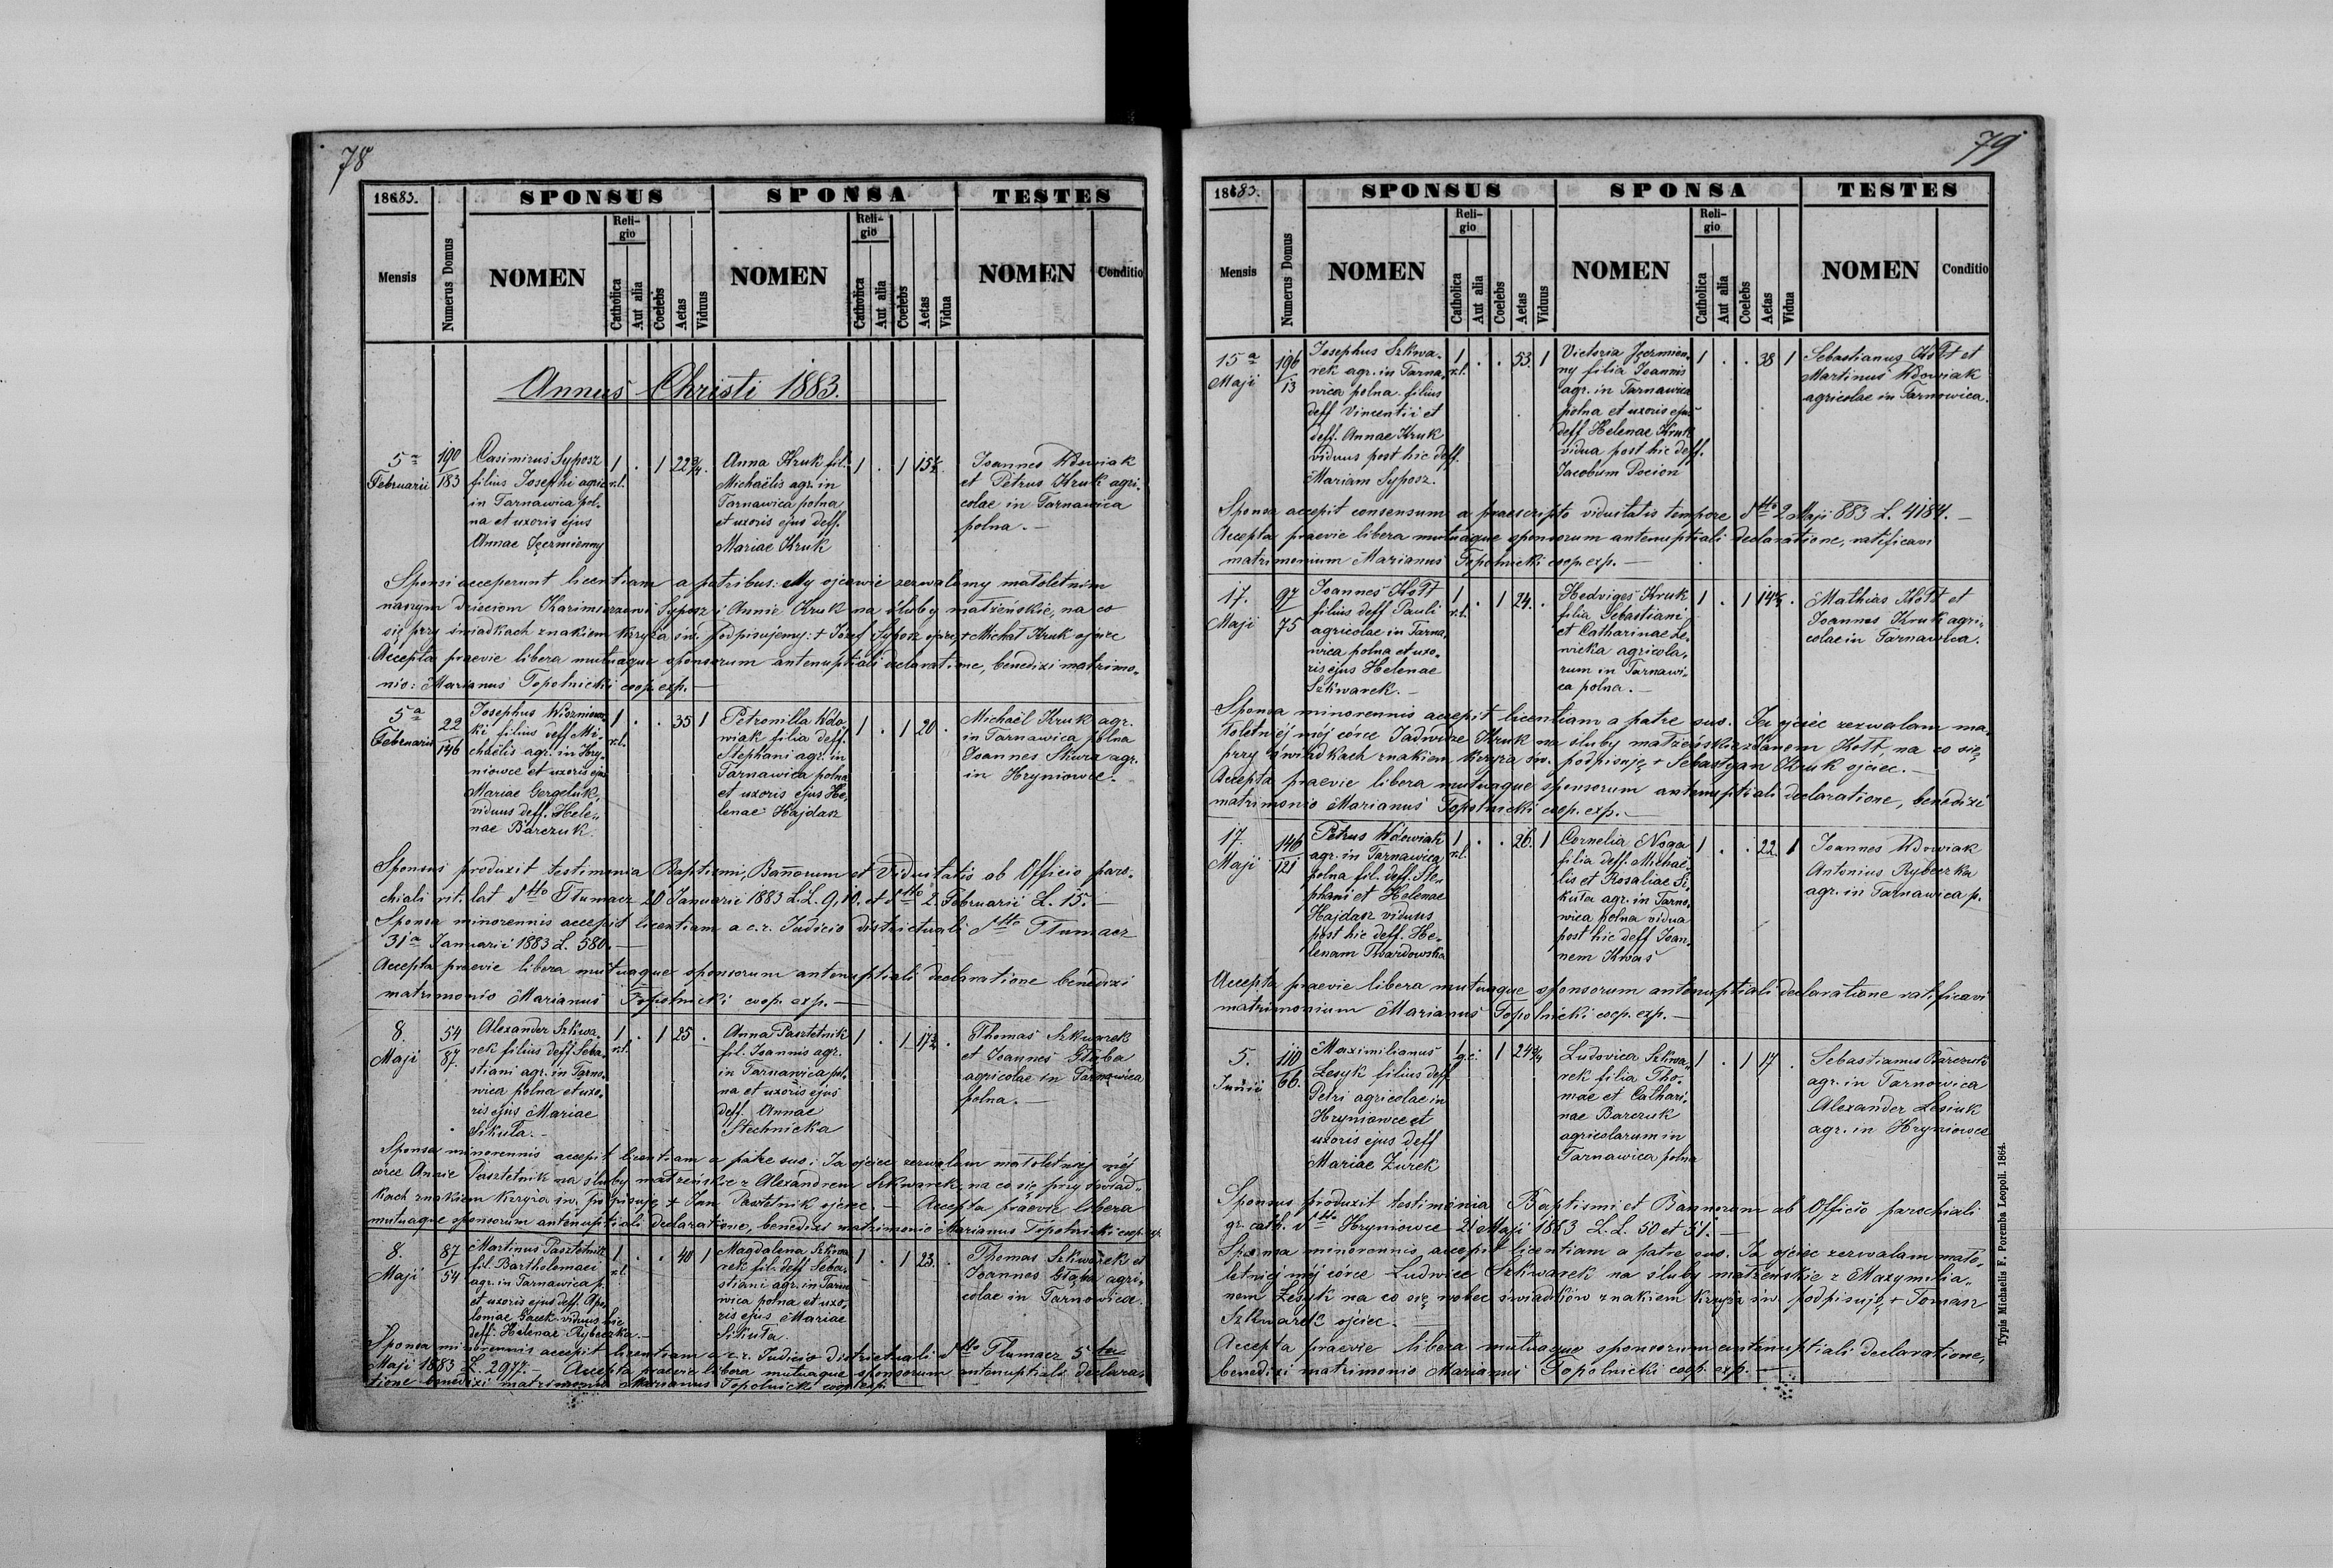 78
1883.
SPONSUS
SPONSA
TESTES
Mensis
Numerus Domus
NOMEN
Religio
Catholica
Aut alia
Coelebs
Aetas
Viduus
NOMEN
Religio
Catholica
Aut alia
Coelebs
Aetas
Vidua
NOMEN
Conditio
Annus Christi 1883.
5a
Februarii
190
183
Casimirus Syposz
filius Josephi agric.
in Tarnawica pol-
na et uxoris ejus
Annae Jęczmienny
1
r.l.
.
1
22 3/4
.
Anna Kruk fil.
Michaëlis agr. in
Tarnawica polna
et uxoris ejus deff.
Mariae Kruk
1
.
1
15
.
Joannes Wdowiak
et Petrus Kruk agri-
colae in Tarnawica
polna. —
Sponsi acceperunt licentiam a patribus: My ojcowie zezwalamy małoletnim
naszym dzieciom Kazimierzowi Syposz i Annie Kruk na śluby małżeńskie, na co
się przy świadkach znakiem krzyża św. podpisujemy: + Józef Syposz ojciec, + Michał Kruk ojciec
Accepta praevie libera mutuaque sponsorum antenuptiali declaratione, benedixi matrimo-
nio: Marianus Topolnicki coop. exp. —
5a
Februarii
22
146
Josephus
ki filius deff. Mi-
chaëlis agr. in Hry-
niowce et uxoris ejus
Mariae Gergeluk,
viduus deff. Hele-
nae Barczuk.
1
r.l.
.
.
35
1
Petronilla Wdo-
wiak filia deff.
Stephani agr. in
Tarnawica polna
et uxoris ejus He-
lenae Hajdasz
1
.
1
20
.
Michaël Kruk agr.
in Tarnawica polna
Joannes Skura agr.
in Hryniowce. —
Sponsus produxit testimonia Baptismi, Bannorum et Viduitatis ab Officio paro-
chiali rit. lat. dtto Tłumacz 20 Januarii 1883 L.L. 9, 10. et dtto 2. Februarii L. 15. —
Sponsa minorennis accepit licentiam a c. r. Judicio districtuali dtto Tłumacz
31a Januarii 1883 L. 580. —
Accepta praevie libera mutuaque sponsorum antenuptiali declaratione benedixi
matrimonio Marianus Topolnicki coop. exp. —
8.
Maji
54
87.
Alexander Szkwa-
rek filius deff. Seba-
stiani agr. in Tarno-
wica polna et uxo-
ris ejus Mariae
Sikuta. —
1
r.l.
.
1
25
.
Anna Pasztetnik
fil. Joannis agr.
in Tarnawica pol-
na et uxoris ejus
deff. Annae
Stechnicka
1
.
1
17 1/2
.
Thomas Szkwarek
et Joannes Głąba
agricolae in Tarnawica
polna. —
Sponsa minorennis accepit licentiam a patre suo: Ja ojciec zezwalam małoletniej mój
córce Annie Pasztetnik na śluby małżeńskie z Alexandrem Szkwarek, na co się przy świad-
kach znakiem krzyża św. podpisuję + Jan Pasztetnik ojciec. — Accepta praevie libera
mutuaque sponsorum antenuptiali declaratione, benedixi matrimonio Marianus Topolnicki coop. exp.
8.
Maji
87
54
Martinus Pasztetnik
fil. Bartholomaei
agr. in Tarnawica p.
et uxoris ejus deff. Apo-
loniae Gacek viduus hic
deff. Helenae Rybeczka. —
1
r.l.
.
.
40
1
Magdalena Szkwa-
rek fil. deff. Seba-
stiani agr. in Tarno-
wica polna et uxo-
ris ejus Mariae
Sikuta.
1
.
1
23.
.
Thomas Szkwarek et
Joannes Głąba agri-
colae in Tarnowica.
Sponsa minorennis accepit licentiam a c. r. Judicio districtuali dtto Tłumacz 5ta
Maji 1883 L. 2977. — Accepta praevie libera mutuaque sponsorum antenuptiali declara-
tione benedixi matrimonio Marianus Topolnicki coop. exp.
79
1883.
SPONSUS
SPONSA
TESTES
Mensis
Numerus Domus
NOMEN
Religio
Catholica
Aut alia
Coelebs
Aetas
Viduus
NOMEN
Religio
Catholica
Aut alia
Coelebs
Aetas
Vidua
NOMEN
Conditio
15a
Maji
196
13
Josephus Szkwa-
rek agr. in Tarna-
wica polna filius
deff Vincentii et
deff. Annae Kruk
viduus post hic deff.
Mariam Syposz.
1
r.l.
.
.
53.
1
Victoria Jęczmien-
ny filia Joannis
agr. in Tarnawica
polna et uxoris ejus
deff Helenae Kruk
vidua post hic deff.
Jacobum Pocion
1
.
.
38
1
Sebastianus Kott et
Martinus Wdowiak
agricolae in Tarnowica.
Sponsa accepit consensum a praescripto viduitatis tempore dtto 2 Maji 883 L. 4184. —
Accepta praevie libera mutuaque sponsorum antenuptiali declaratione, ratificavi
matrimonium Marianus Topolnicki coop. exp. —
17.
Maji
97
75
Joannes Kott
filius deff Pauli
agricolae in Tarna-
wica polna et uxo-
ris ejus Helenae
Szkwarek. —
1
r.l.
.
1
24.
.
Hedviges Kruk
filia Sebastiani
et Catharinae Le-
wicka agricola-
rum in Tarnawi-
ca polna. —
1
.
1
14
.
Mathias Kott et
Joannes Kruk agri-
colae in Tarnawica.
Sponsa minorennis accepit licentiam a patre suo. Ja ojciec zezwalam ma-
łoletniéj mój córce Jadwidze Kruk na śluby małżeńskie z Janem Kott, na co się
przy świadkach znakiem krzyża św. podpisuję + Sebastyan Kruk ojciec. —
Accepta praevie libera mutuaque sponsorum antenuptiali declaratione, benedixi
matrimonio Marianus Topolnicki coop. exp. —
17.
Maji
146
121
Petrus Wdowiak
agr. in Tarnawica
polna fil. deff. Ste-
phani et Helenae
Hajdasz viduus
post hic deff. He-
lenam Twardowska
1
r.l.
.
.
26.
1
Cornelia Noga
filia deff. Michaë-
lis et Rosaliae Si-
kuta agr. in Tarno-
wica polna vidua
post hic deff Joan-
nem Kwas
1
.
.
22
1
Joannes Wdowiak
Antonius Rybeczka
agr. in Tarnawica p.
Accepta praevie libera mutuaque sponsorum antenuptiali declaratione ratificavi
matrimonium Marianus Topolnicki coop. exp. —
5.
Junii
110
66.
Maximilianus
Lesyk filius deff
Petri agricolae in
Hryniowce et
uxoris ejus deff
Mariae Zurek
g.c.
1
24 3/4
Ludovica Szkwa-
rek filia Tho-
mae et Cathari-
nae Barczuk
agricolarum in
Tarnawica polna
1
.
1
17
.
Sebastianus Barczuk
agr. in Tarnowica
Alexander Lesiuk
agr. in Hryniowce
Sponsus produxit testimonia Baptismi et Bannorum ab Officio parochiali
gr. cath. dtto Hryniowce 21 Maji 1883 L.L. 50 et 51. —
Sponsa minorennis accepit licentiam a patre suo. Ja ojciec zezwalam mało-
letniej mój córce Ludwice Szkwarek na śluby małżeńskie z Maxymilia-
nem Lesyk na co się wobec świadków znakiem krzyża św. podpisuję + Tomasz
Szkwarek ojciec. —
Accepta praevie libera mutuaque sponsorum antenuptiali declaratione,
benedixi matrimonio Marianus Topolnicki coop. exp. —
Typis Michaelis F. Poremba Leopoli. 1864.